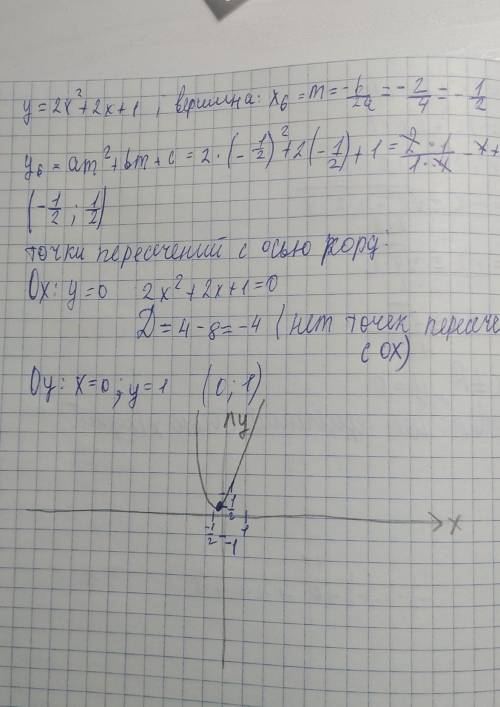 y = 2x²+2x+1 ; вершина: x₆ = m = -b/2a = -2/4 = -1/2
y₆ = am²+bm+c = 2·(-1/2)²+2(-1/2)+1 = 2·1/1·4 -1+
(-1/2 ; 1/2)
точки пересечений с осью коорд:
Ox: y=0 2x²+2x+1=0
D = 4-8 = -4 (нет точек пересече
с OX)
Oy: x=0; y=1 (0; 1)
y
1/2
x
-1/2 -1 1